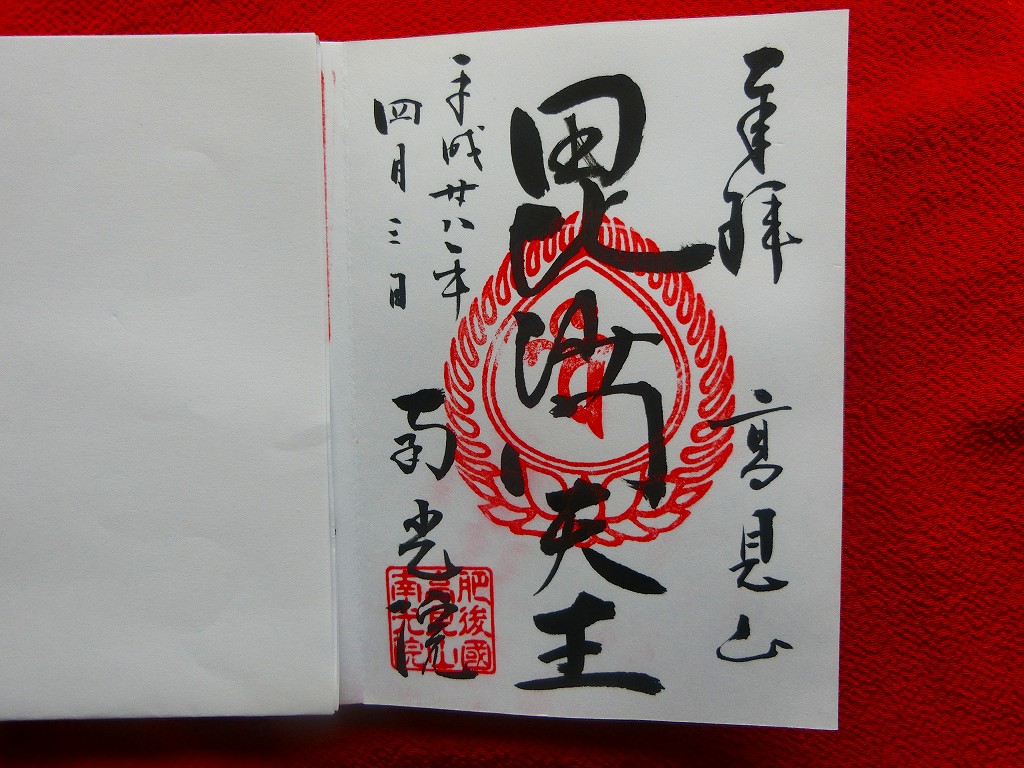 奉拝
高見山
毘沙門天王
平成廿八年
四月三日
南光院
肥後國
高見山
南光院